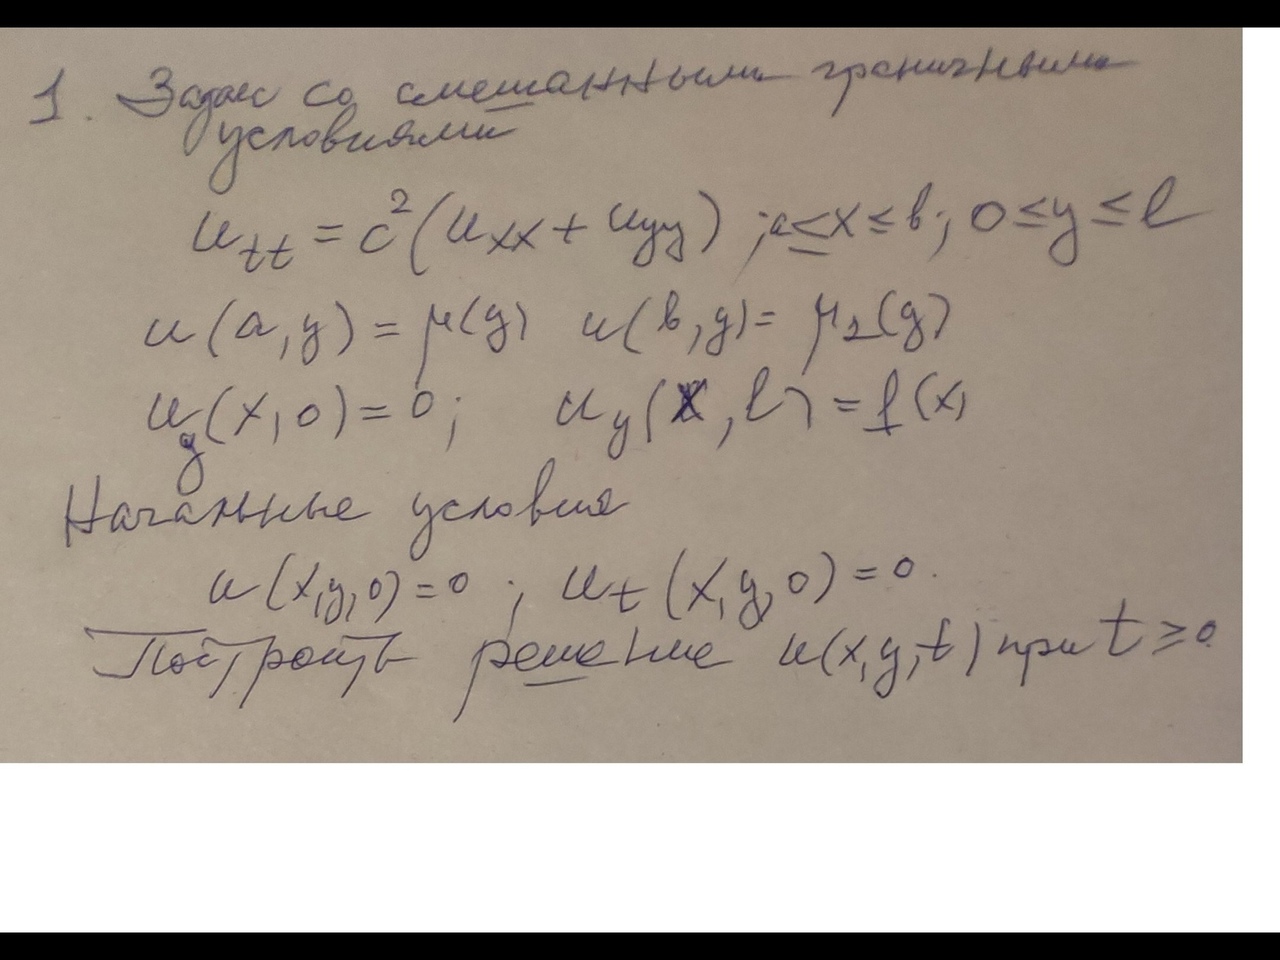 1. Задача со смешанными граничными
условиями
u_tt = c²(u_xx + u_yy) ; a ≤ x ≤ b; 0 ≤ y ≤ l
u(a,y) = μ(y) u(b,y) = μ₂(y)
u_y(x,0) = 0; u_y(x,l) = f(x)
Начальные условия
u(x,y,0) = 0 ; u_t(x,y,0) = 0.
Построить решение u(x,y,t) при t ≥ 0.